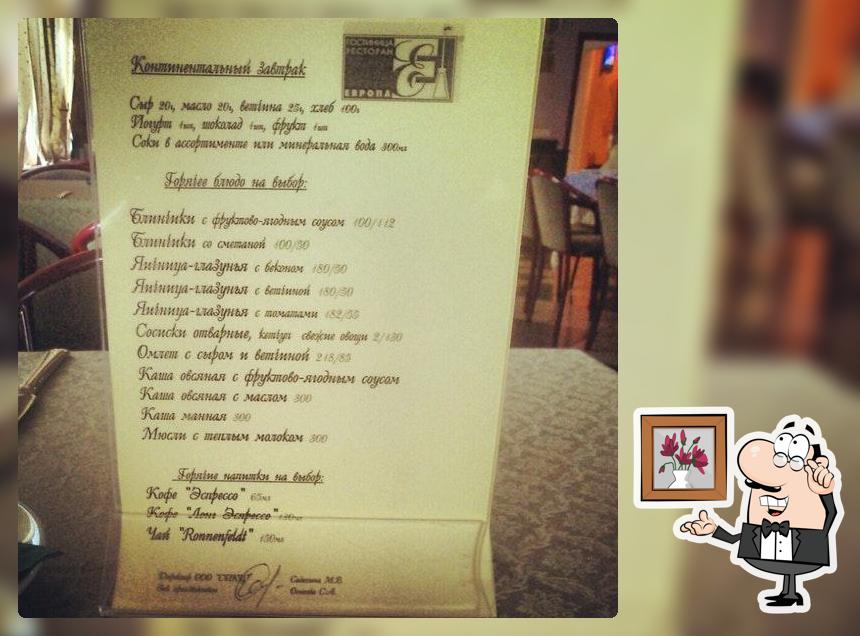 ГОСТИНИЦА
РЕСТОРАН
ЕВРОПА
Континентальный завтрак
Сыр 20г, масло 20г, ветчина 25г, хлеб 100г
Йогурт 1шт, шоколад 1шт, фрукт 1шт
Соки в ассортименте или минеральная вода 300мл
Горячее блюдо на выбор:
Блинчики с фруктово-ягодным соусом 100/112
Блинчики со сметаной 100/30
Яичница-глазунья с беконом 180/50
Яичница-глазунья с ветчиной 180/50
Яичница-глазунья с томатами 182/55
Сосиски отварные, кетчуп свежие овощи 2/130
Омлет с сыром и ветчиной 218/85
Каша овсяная с фруктово-ягодным соусом
Каша овсяная с маслом 300
Каша манная 300
Мюсли с теплым молоком 300
Горячие напитки на выбор:
Кофе "Эспрессо" 65мл
Кофе "Лонг Эспрессо" 130мл
Чай "Ronnenfeldt" 150мл
Директор ООО